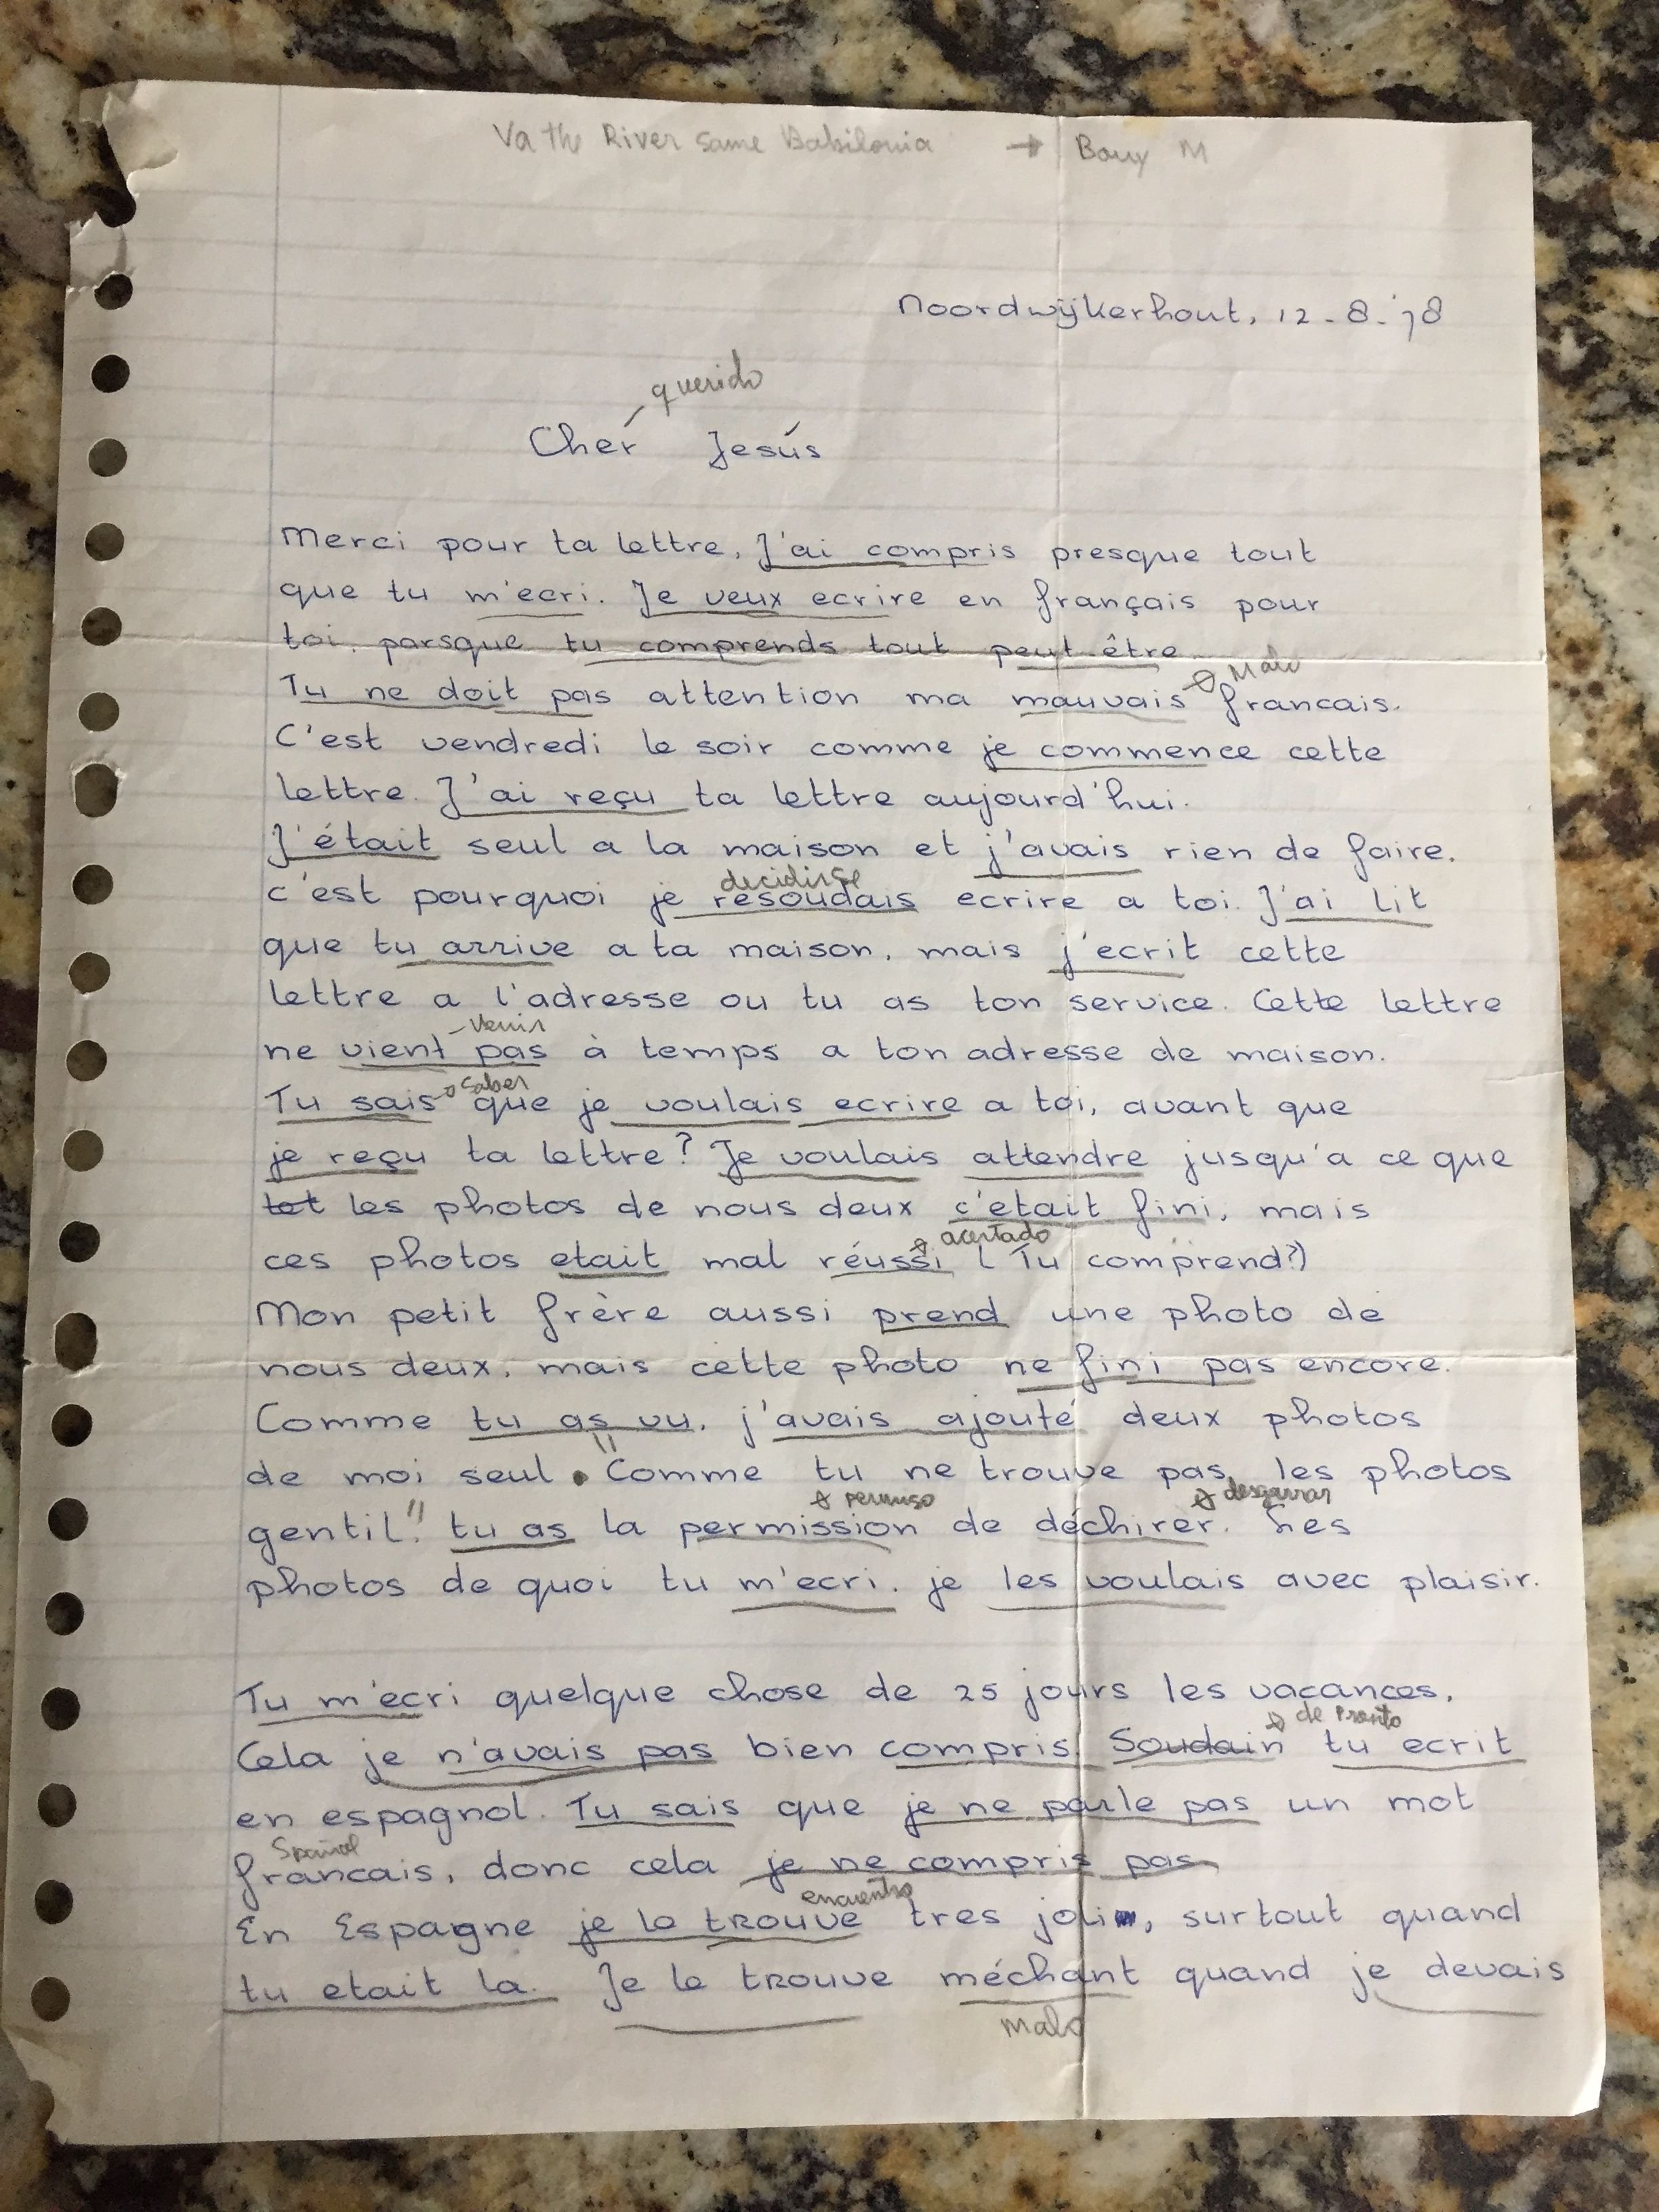 Va the River same Babilonia → Bony M
Noordwijkerhout, 12-8-'78
querido
Cher Jesús
Merci pour ta lettre, J'ai compris presque tout
que tu m'ecri. Je veux ecrire en français pour
toi, parsque tu comprends tout peut être.
Malo
Tu ne doit pas attention ma mauvais francais.
C'est vendredi le soir comme je commence cette
lettre. J'ai reçu ta lettre aujourd'hui.
J'était seul a la maison et j'avais rien de faire,
decidirse
c'est pourquoi je resoudais ecrire a toi. J'ai lit
que tu arrive a ta maison, mais j'ecrit cette
lettre a l'adresse ou tu as ton service. Cette lettre
venir
ne vient pas à temps a ton adresse de maison.
saber
Tu sais que je voulais ecrire a toi, avant que
je reçu ta lettre? Je voulais attendre jusqu'a ce que
tot les photos de nous deux c'etait fini, mais
acertado
ces photos etait mal réussi (Tu comprend?)
Mon petit frère aussi prend une photo de
nous deux, mais cette photo ne fini pas encore.
Comme tu as vu, j'avais ajouté deux photos
de moi seul. "Comme tu ne trouve pas les photos
permiso desgarrar
gentil", tu as la permission de déchirer. Les
photos de quoi tu m'ecri, je les voulais avec plaisir.
Tu m'ecri quelque chose de 25 jours les vacances,
de Pronto
Cela je n'avais pas bien compris. Soudain tu ecrit
en espagnol. Tu sais que je ne parle pas un mot
Spañol
francais, donc cela je ne compris pas.
encuentro
En Espagne je le trouve tres joli, surtout quand
tu etait la. Je le trouve méchant quand je devais
Malo